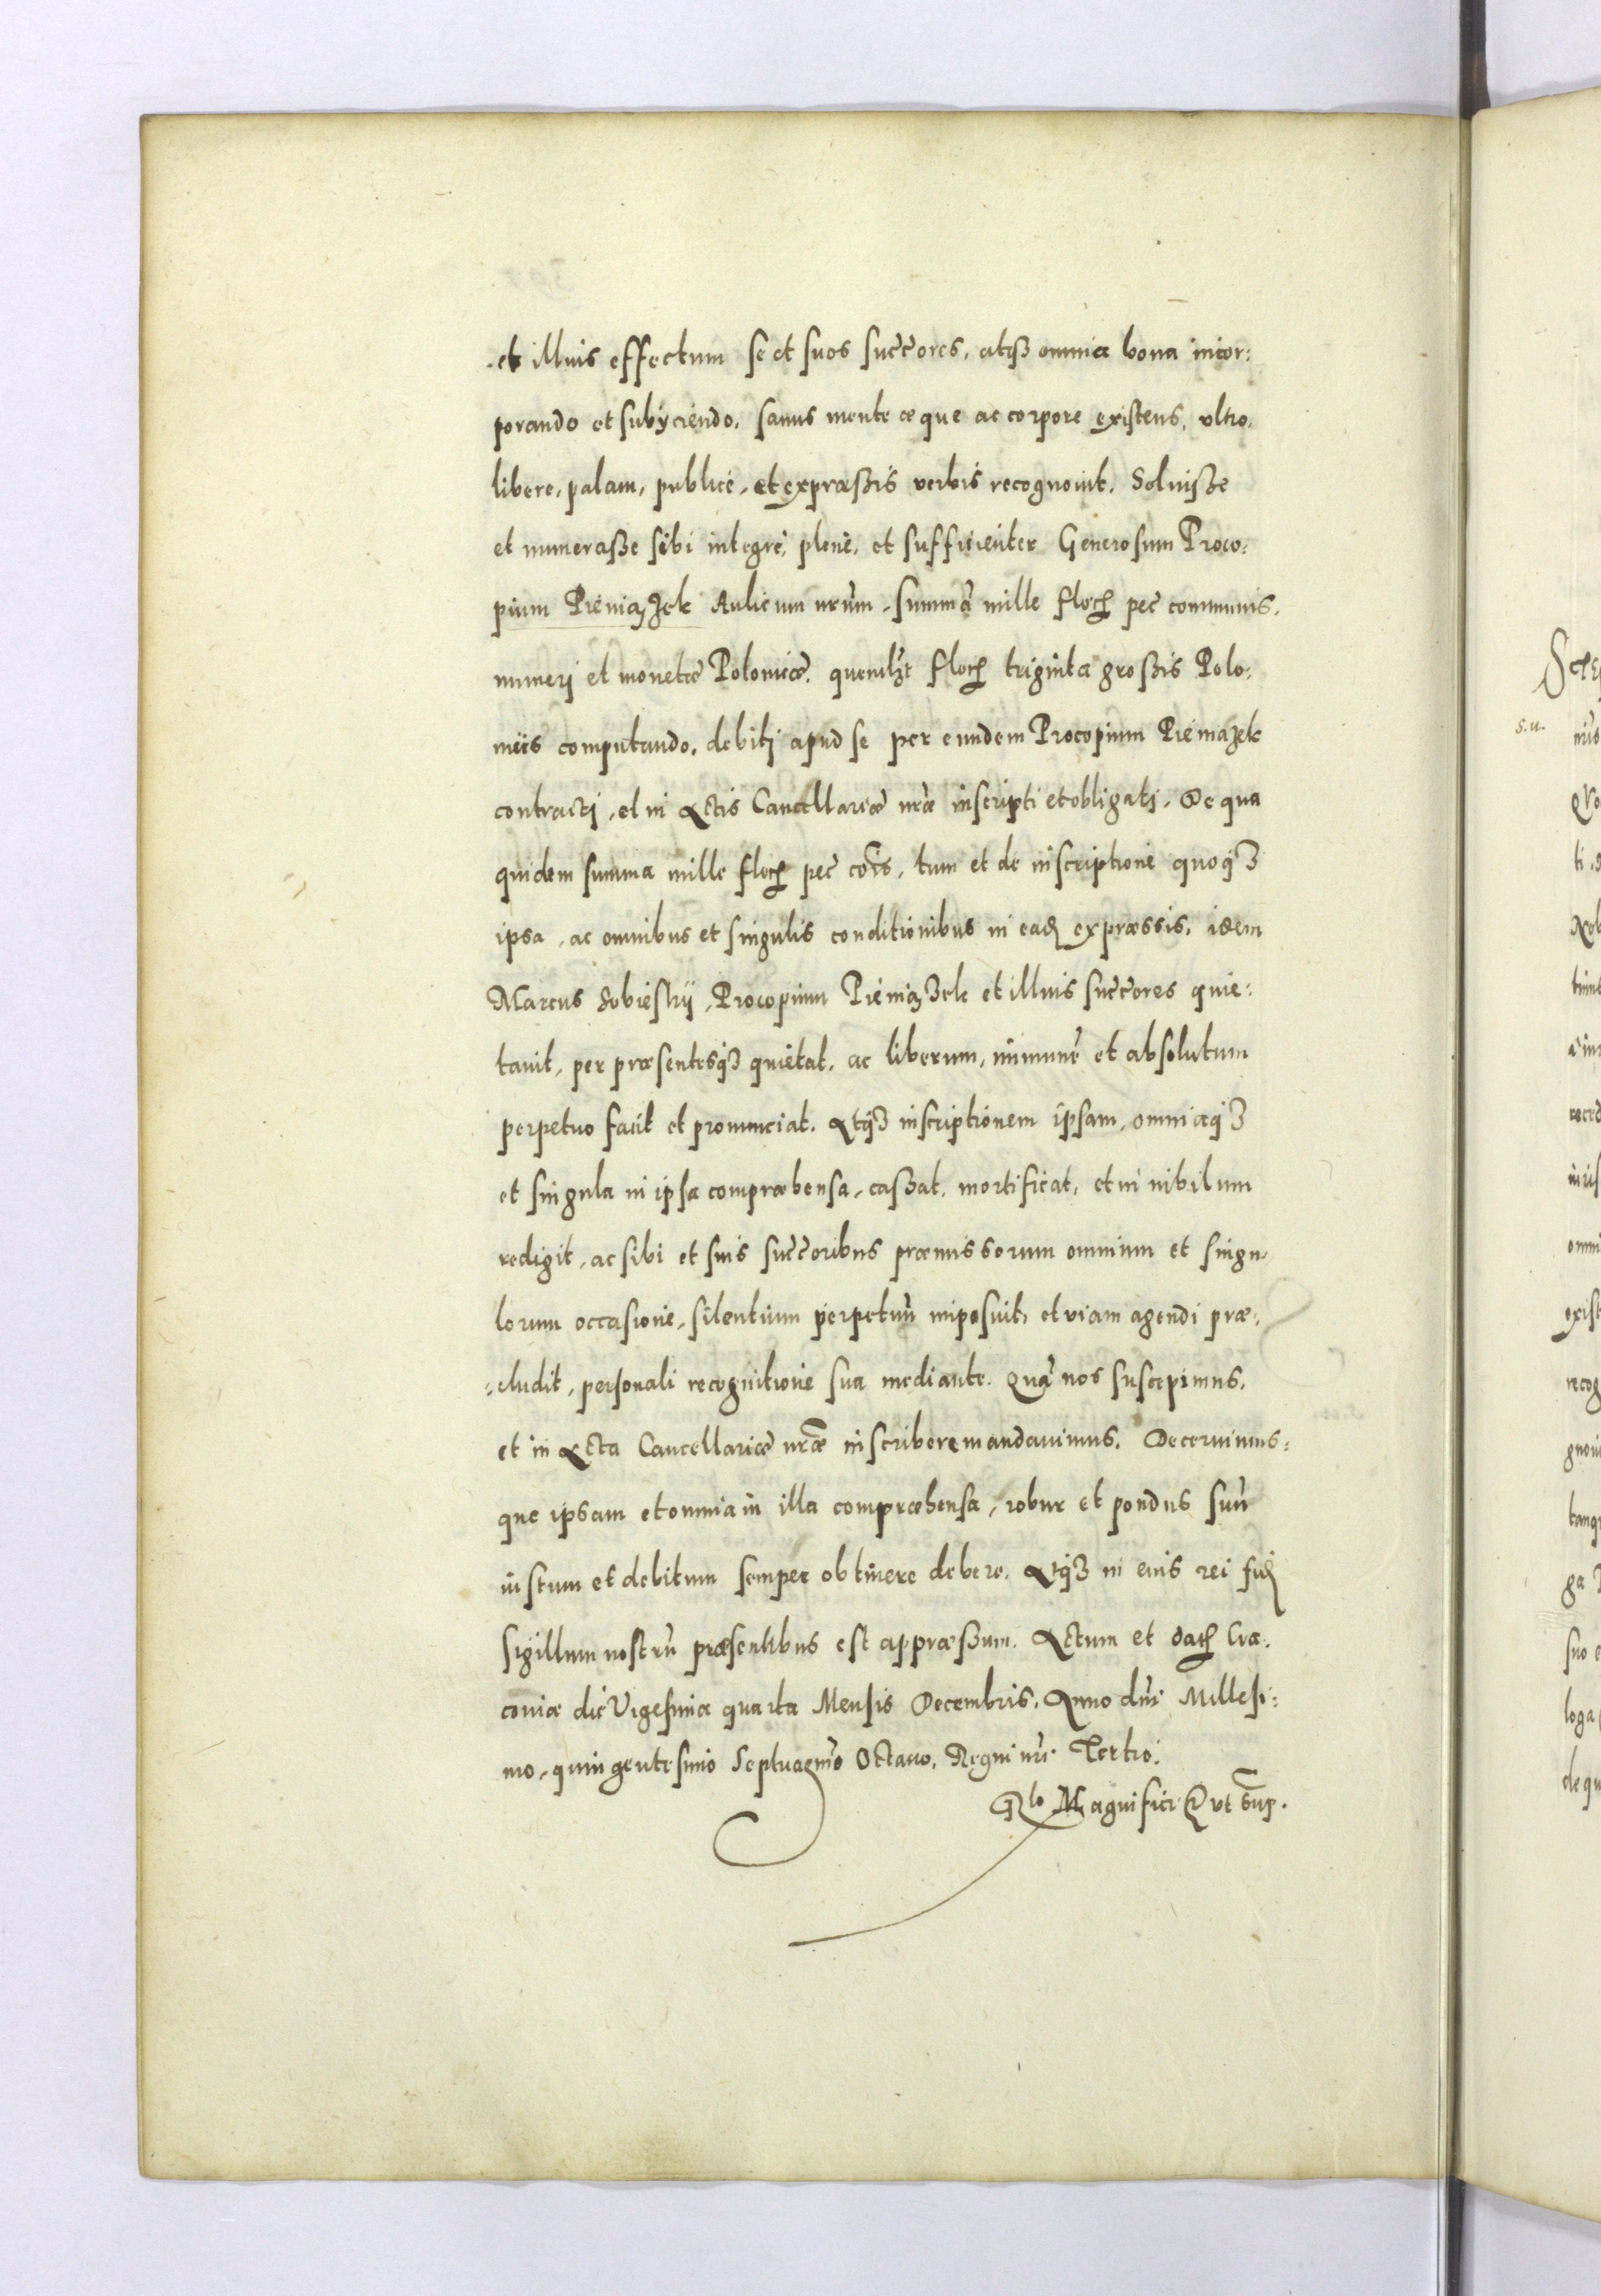 et illius effectum se et suos succores, atqȝ omnia bona incor:
porando et subÿciendo, sanus mente æque ac corpore existens, vltro,
libere, palam, publicè, et expræßis verbis recognouit. Soluiße
et numeraße sibi integrè, plenè, et sufficienter Generosum Proco:
pium Pieniązek Aulicum nrum, summã mille floꝝ pec communis,
numerj et monetæ Polonicæ, quemlꝫt floꝝ triginta großis Polo:
nicis computando, debitj apud se per eundem Procopium Pieniązek
contractj, et in Actis Cancellariæ nræ inscripti et obligatj. De qua
quidem summa mille floꝝ pec cois, tum et de inscriptione quoqȝ
ipsa, ac omnibus et singulis conditionibus in eaḍ expræssis, idem
Marcus Sobieskÿ, Procopium Pieniązek et illius succores quie:
tauit, per præsentesqȝ quietat, ac liberum, immunẽ et absolutum
perpetuo facit et pronunciat. Atqȝ inscriptionem ipsam, omniaqȝ
et singula in ipsa compræhensa, caßat, mortificat, et in nihilum
redigit, ac sibi et suis succoribus præmissorum omnium et singu:
lorum occasione, silentium perpetuũ imposuit, et viam agendi præ:
:cludit, personali recognitione sua mediante. Quã nos suscepimus,
et in Acta Cancellariæ nræ inscribere mandauimus. Decernimus:
que ipsam et omnia in illa compræhensa, robur et pondus suũ
iustum et debitum semper obtinere debere. Atqȝ in eius rei fiḍ
Sigillum nostrũ præsentibus est appræßum. Actum et daꝝ Cra:
coviæ die Vigesima quarta Mensis Decembris, Anno dni Millesi:
mo, quingentesimo Septuagmo Octauo, Regni nri Tertio.
Rlo Magnifici & vt sup.
S. u.